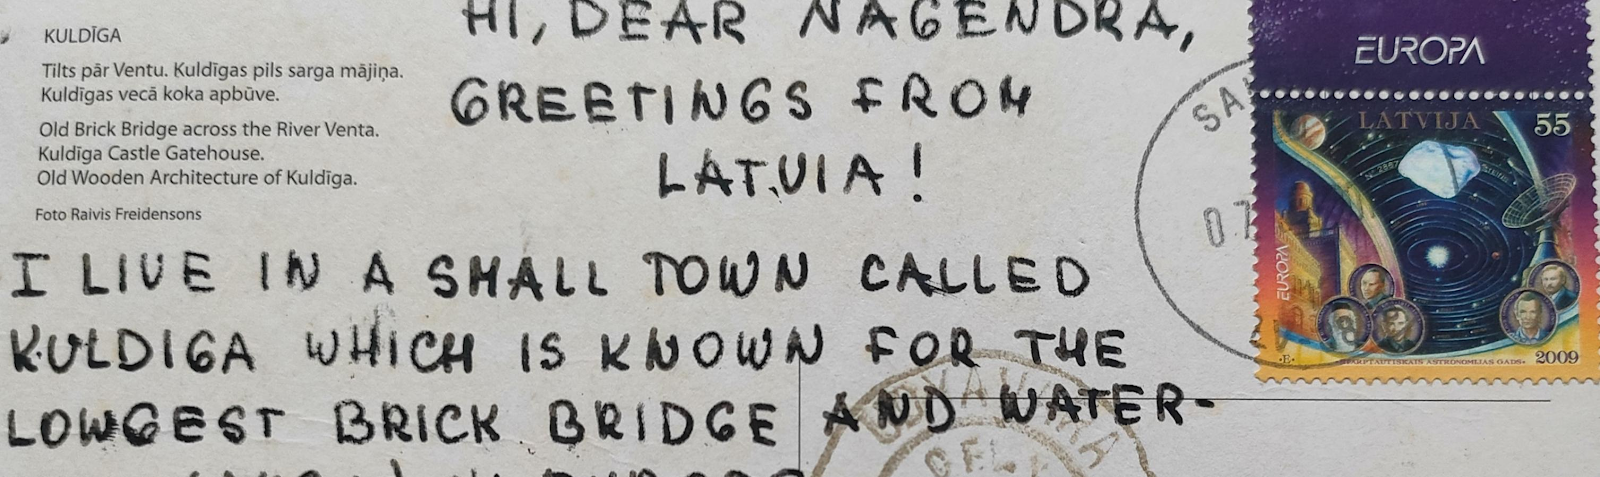 KULDĪGA
Tilts pār Ventu. Kuldīgas pils sarga mājiņa.
Kuldīgas vecā koka apbūve.
Old Brick Bridge across the River Venta.
Kuldīga Castle Gatehouse.
Old Wooden Architecture of Kuldīga.
Foto Raivis Freidensons
HI, DEAR NAGENDRA,
GREETINGS FROM
LATVIA!
I LIVE IN A SMALL TOWN CALLED
KULDIGA WHICH IS KNOWN FOR THE
LOWGEST BRICK BRIDGE AND WATER-
IN EUROPE
EUROPA
LATVIJA 55
EUROPA
STARPTAUTISKAIS ASTRONOMIJAS GADS 2009
07
DEL